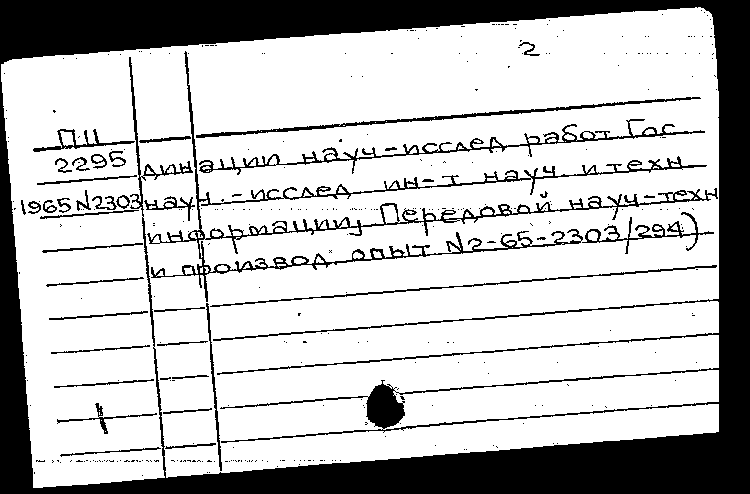 2
П11
2295 динации науч-исслед работ Гос
1965 N2303 науч.-исслед ин-т науч. и техн
информации, Передовой науч-техн
и производ. опыт N2-65-2303/294)